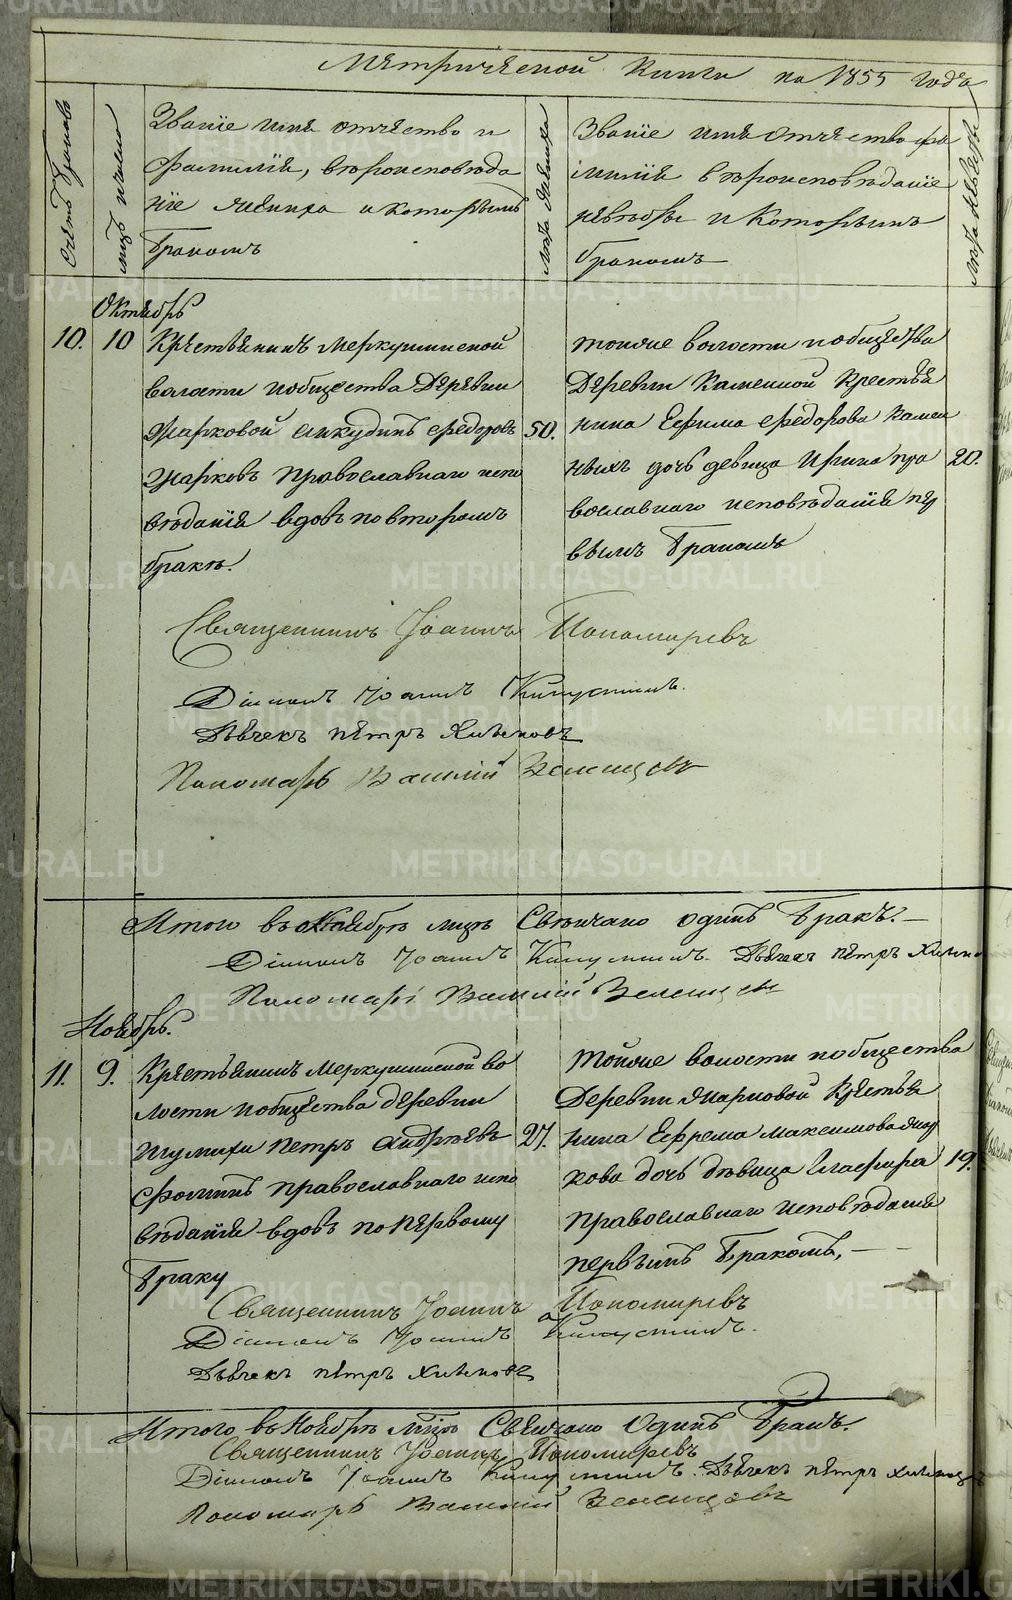 Метрической Книги на 1855 года
Счетъ браковъ
мѣсяцъ и число
Званіе имя отчество и
фамилія, вѣроисповѣда
ніе жениха и которымъ
бракомъ
лѣта жениха
Званіе имя отчество фа
милія вѣроисповѣданіе
невѣсты и которымъ
бракомъ
лѣта невѣсты
Октябрь
10. 10
Крестьянинъ Меркушинской
волости и общества Деревни
Жарковой Анкудинъ Федоровъ
Жарковъ Православнаго испо
вѣданія вдовъ по второмъ
бракѣ.
50.
тойже волости и общества
Деревни Каменной Крестья
нина Ефима Федорова Камен
ныхъ дочь девица Ирина пра
вославнаго исповѣданія пер
вымъ бракомъ
20.
Священникъ Іоаннъ Пономаревъ
Діаконъ Іоаннъ Капустинъ.
Дьячекъ Петръ Хлыновъ
Пономарь Василій Зеленцовъ
Итого въ Октябрѣ мцѣ Свѣнчано одинъ бракъ.—
Діаконъ Іоаннъ Капустинъ. Дьячекъ Петръ
Пономарь Василій Зеленцовъ
Ноябрь.
11. 9.
Крестьянинъ Меркушинской во
лости и общества деревни
Шумихи Петръ Андреевъ
православнаго испо
вѣданія вдовъ по первому
браку
27.
Тойже волости и общества
Деревни Жарковой Крестья
нина Ефрема Максимова
кова дочь дѣвица Глафира
Православнаго исповѣданія
первымъ бракомъ,—
19.
Священникъ Іоаннъ Пономаревъ
Діаконъ Іоаннъ Капустинъ.
Дьячекъ Петръ Хлыновъ
Итого въ Ноябрѣ мцѣ Свѣнчано Одинъ бракъ.
Священникъ Іоаннъ Пономаревъ
Діаконъ Іоаннъ Капустинъ. Дьячекъ Петръ Хлыновъ
Пономарь Василій Зеленцовъ
METRIKI.GASO-URAL.RU